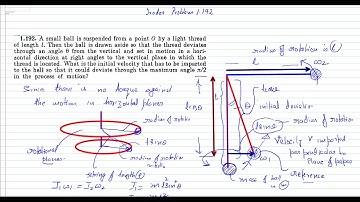 Irodov Problem 1.192
1.192. A small ball is suspended from a point O by a light thread
of length l. Then the ball is drawn aside so that the thread deviates
through an angle θ from the vertical and set in motion in a hori-
zontal direction at right angles to the vertical plane in which the
thread is located. What is the initial velocity that has to be imparted
to the ball so that it could deviate through the maximum angle π/2
in the process of motion?
radius of rotation is l
l
ω2
Since there is no torque against
the motion in horizontal planes
radius of rotation
lsinθ
rotational
planes
radius of rotation
string of length l
I1ω1 = I2ω2
l
lcosθ
θ
initial deviation
lsinθ
radius of rotation
Velocity v imparted
perpendicular to
Plane of paper
ω1
reference
mass of ball is m